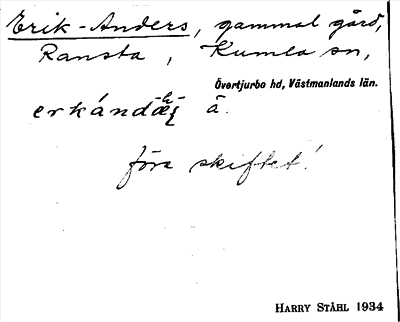 Erik-Anders, gammal gård,
Ransta, Kumla sn,
Övertjurbo hd, Västmanlands län.
ä.
före skiftet!
HARRY STÅHL 1934